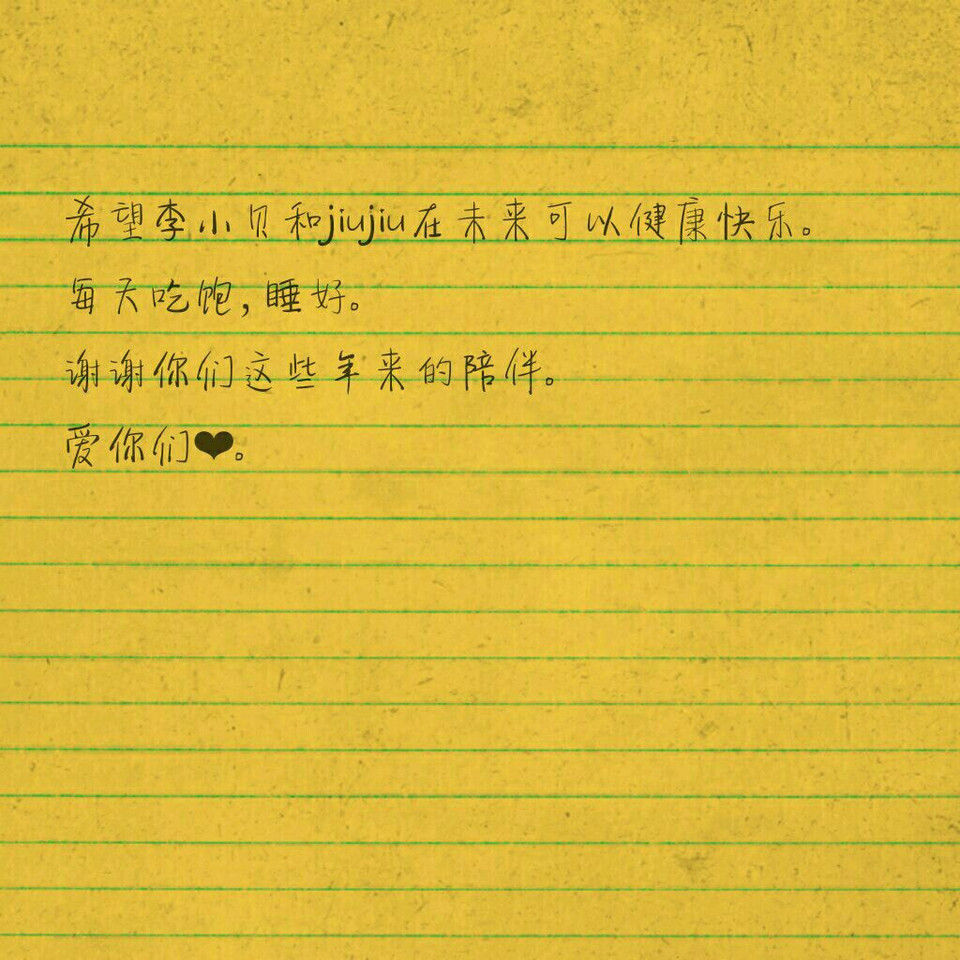 希望李小贝和jiujiu在未来可以健康快乐。
每天吃饱,睡好。
谢谢你们这些年来的陪伴。
爱你们❤。